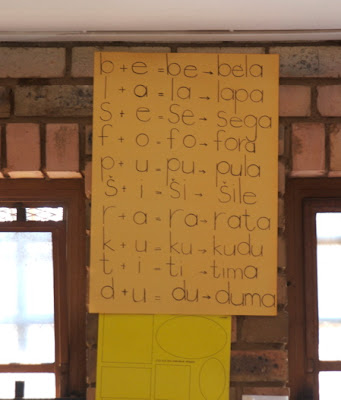 b + e = be → bela
l + a = la → lapa
S + e = Se → Sega
f + o = fo → ford
p + u = pu → pula
Š + i = Ši → Šile
r + a = ra → rata
k + u = ku → kudu
t + i = ti → tima
d + u = du → duma